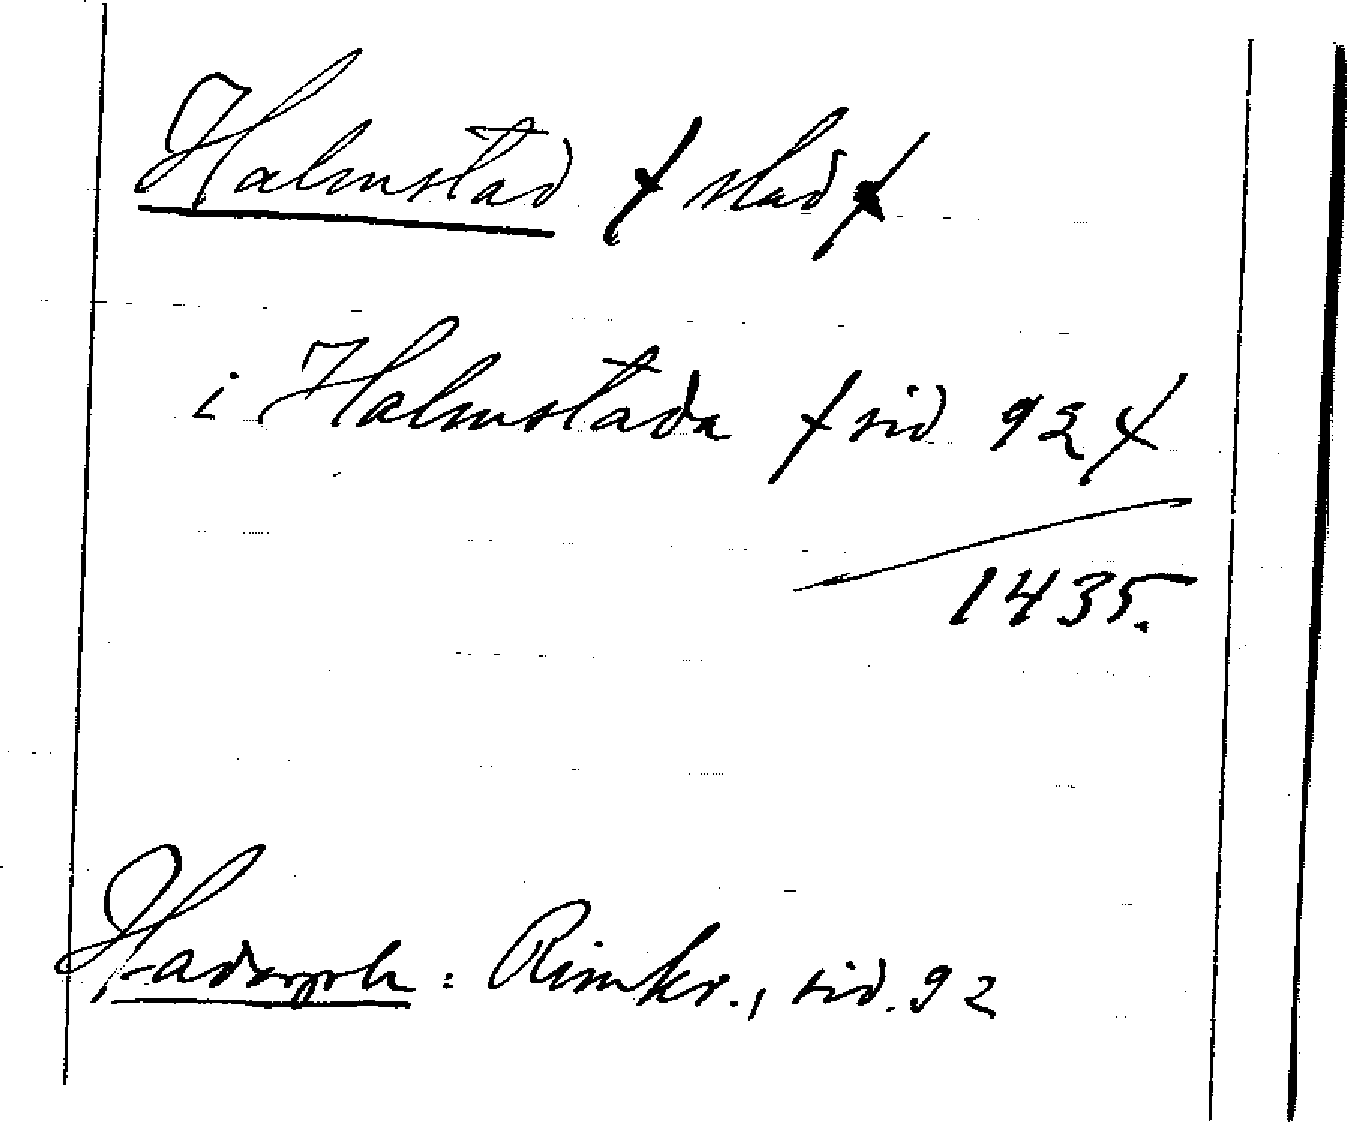 Halmstad ⟊ stad ⟊
i Halmstada ⟊ sid 92 ⟊
1435.
Hadorph : Rimkr., sid. 92